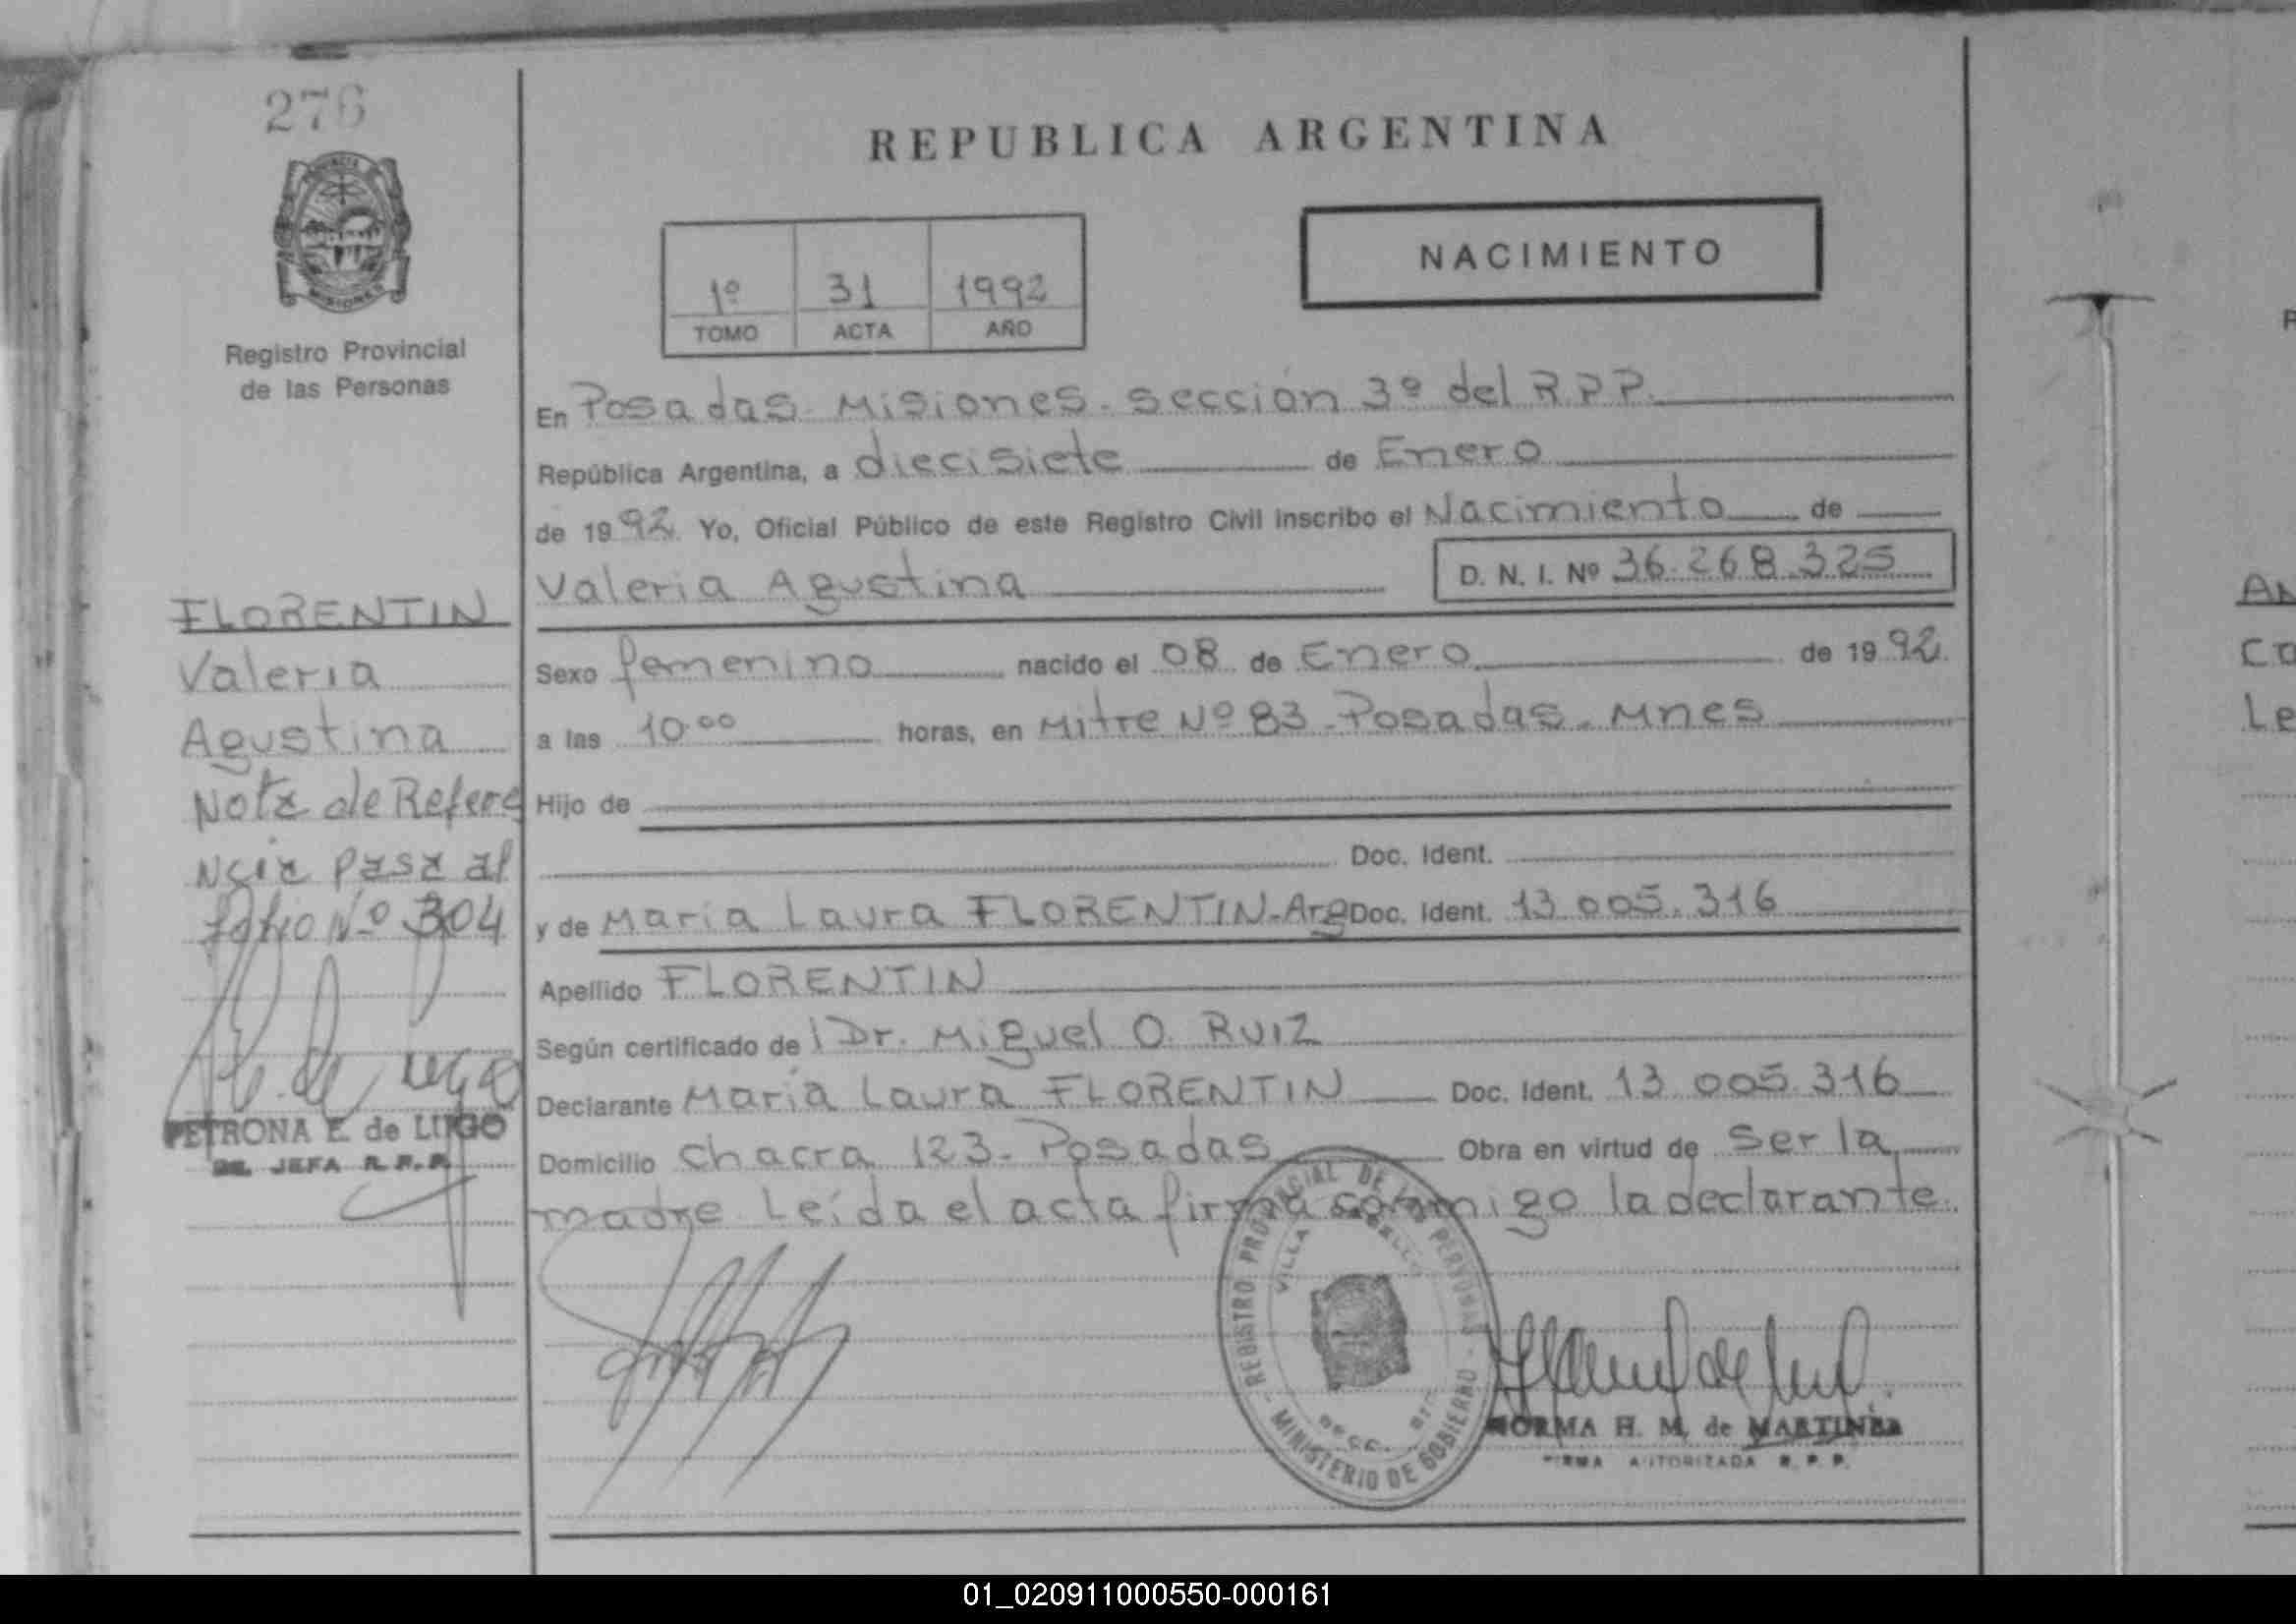 276
PROVINCIA
MISIONES
Registro Provincial
de las Personas
FLORENTIN
Valeria
Agustina
Nota de Refere
ncia pasa al
folio Nº 304
PETRONA E. de LUGO
JEFA R.P.P.
REPUBLICA ARGENTINA
1º 31 1992
TOMO ACTA AÑO
NACIMIENTO
En Posadas. Misiones. Sección 3º del R.P.P.
República Argentina, a diecisiete de Enero
de 1992 Yo, Oficial Público de este Registro Civil inscribo el Nacimiento de
Valeria Agustina D. N. I. Nº 36.268.325
Sexo femenino nacido el 08 de Enero de 1992.
a las 10.00 horas, en Mitre Nº 83 - Posadas. Mnes
Hijo de
Doc. Ident.
y de María Laura FLORENTIN-Arg Doc. Ident. 13.005.316
Apellido FLORENTIN
Según certificado de l Dr. Miguel O. RUIZ
Declarante María Laura FLORENTIN Doc. Ident. 13.005.316
Domicilio chacra 123- Posadas Obra en virtud de ser la
madre. Leída el acta firma conmigo la declarante.
REGISTRO PROVINCIAL DE LAS PERSONAS - MINISTERIO DE GOBIERNO -
VILLA
NORMA H. M. de MARTINEZ
FIRMA AUTORIZADA R. P. P.
An
Co
Le
01_020911000550-000161